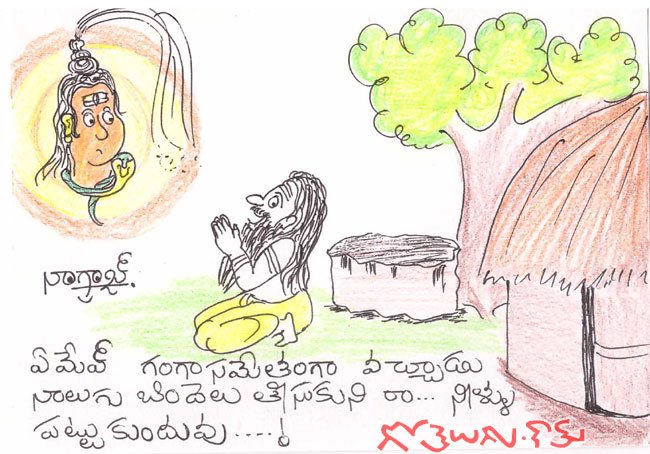 నాగ్రాజ్.
ఏమేవ్ గంగాసమేతంగా వచ్చాడు
నాలుగు బిందెలు తీసుకుని రా... నీళ్ళు
పట్టుకుందువు....!
గోతెలుగు.కామ్